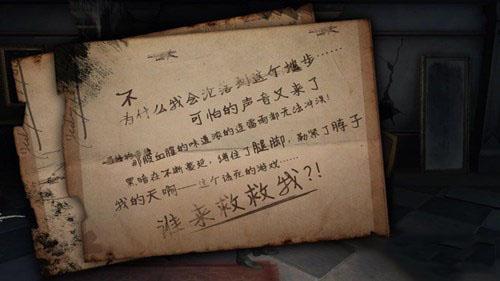 不
为什么我会沦落到这个地步……
可怕的声音又来了
那股血腥的味道浓的连雷雨都无法冲淡!
黑暗在不断蔓延，缚住了腿脚，勒紧了脖子
我的天啊——这个该死的游戏……
谁来救救我?!